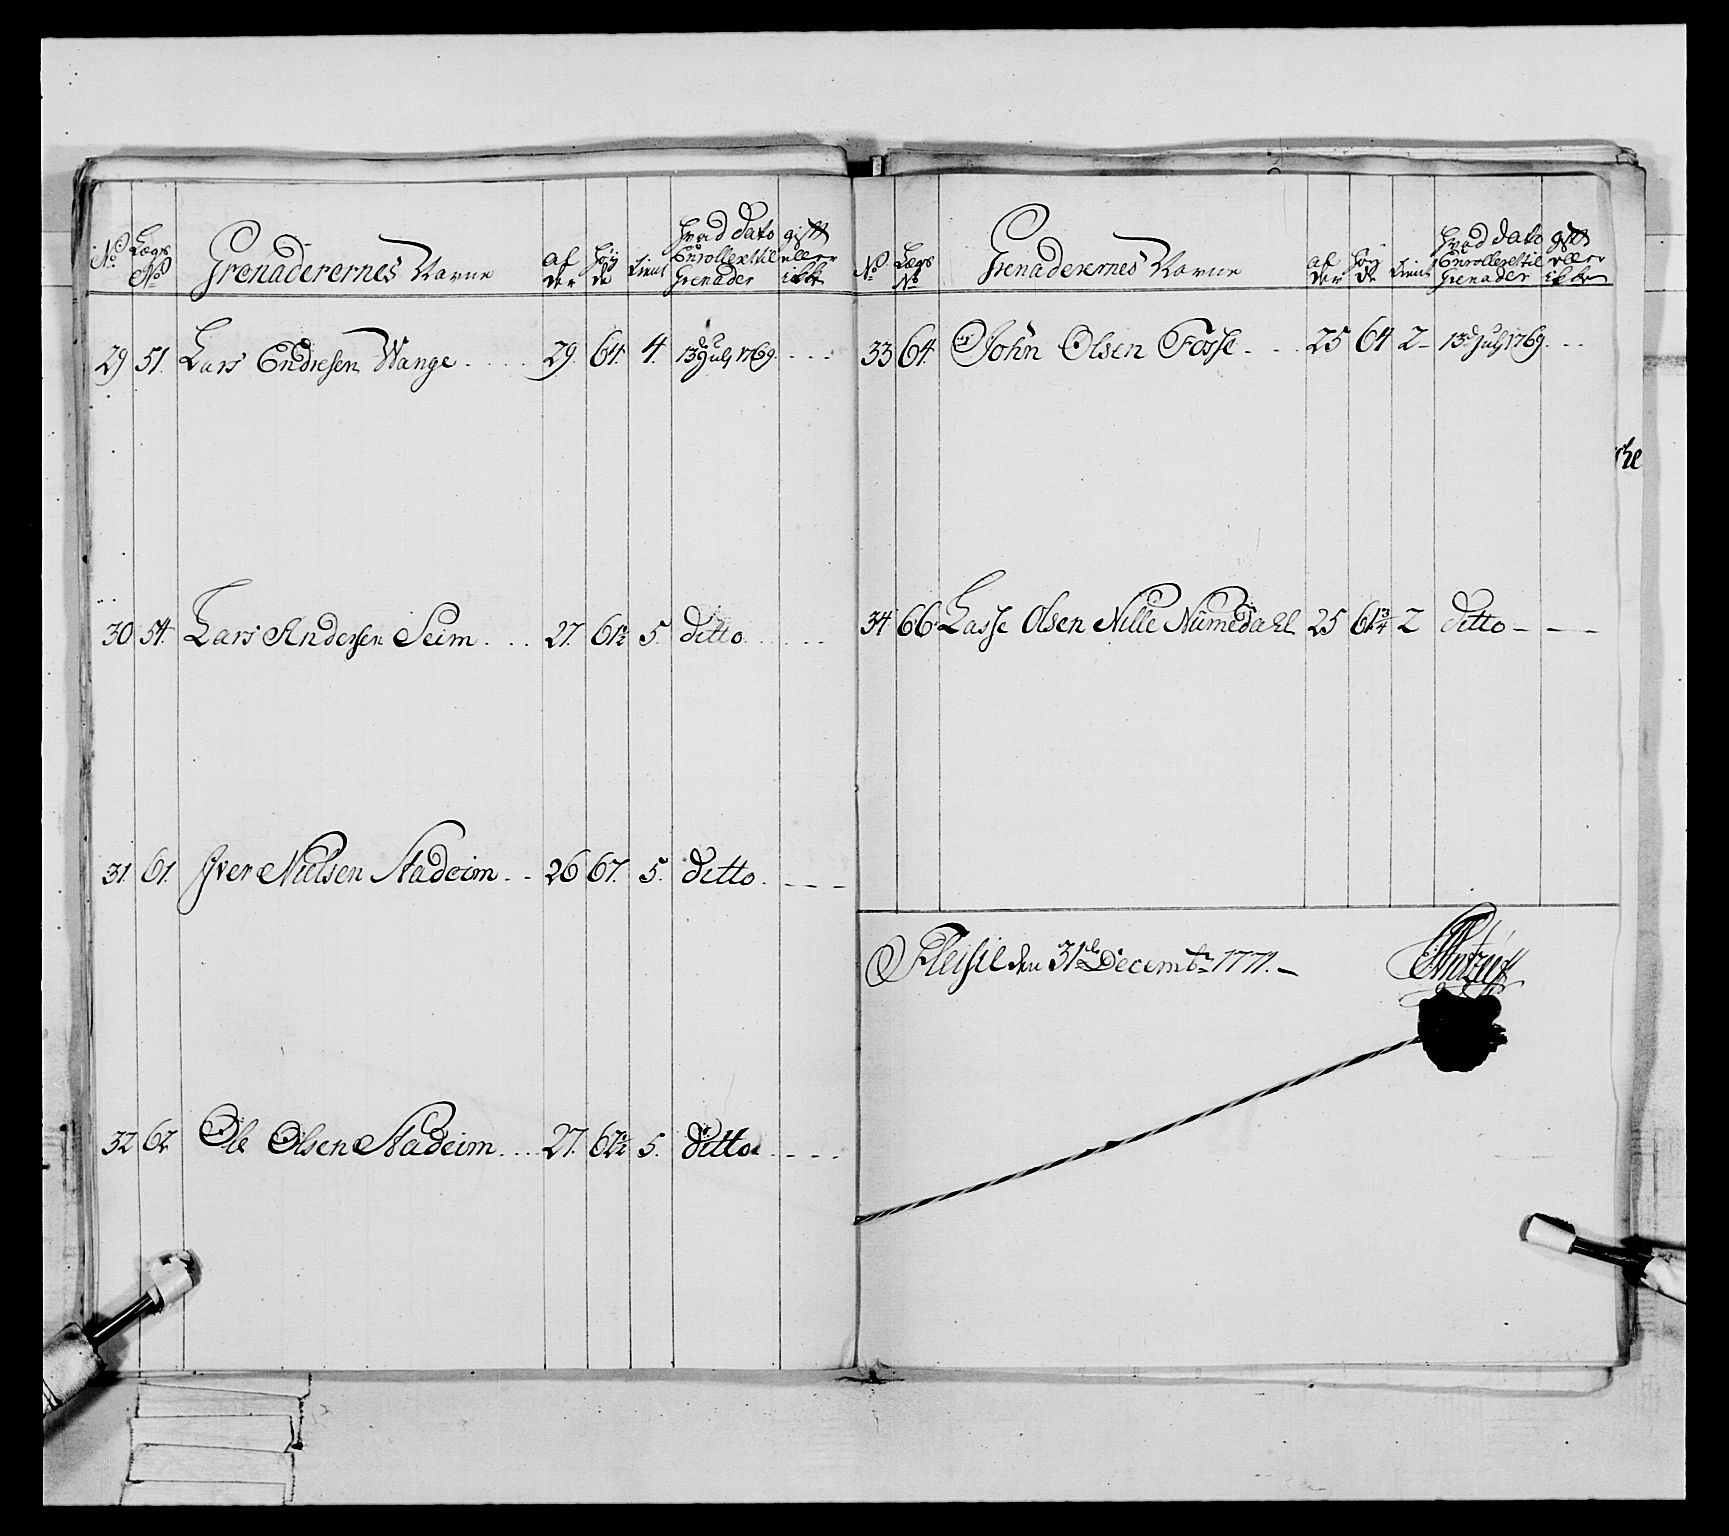 No Lægs No Grenaderernes Navne al der høy de tient hvad dato Enrolleret til Grenader gift eller ikke
29 51. Lars Endresen Wange 29. 64. 4. 13de July 1769.
30 54. Lars Andersen Seim 27. 61½ 5. ditto
31. 61. Iver Nielsen Stadeim 26 67. 5. ditto.
32 62 Ole Olsen Stadeim 27. 67½ 5. ditto
No Lægs No Grenaderernes Navne al der høy de tient hvad dato Enrolleret til Grenader gift eller ikke
33 64. John Olsen Fosse 25 64 2 13de July 1769.
34 66. Lasse Olsen Nille Numedahl 25 61¾ 2 ditto
den 31de Decembr 1771.